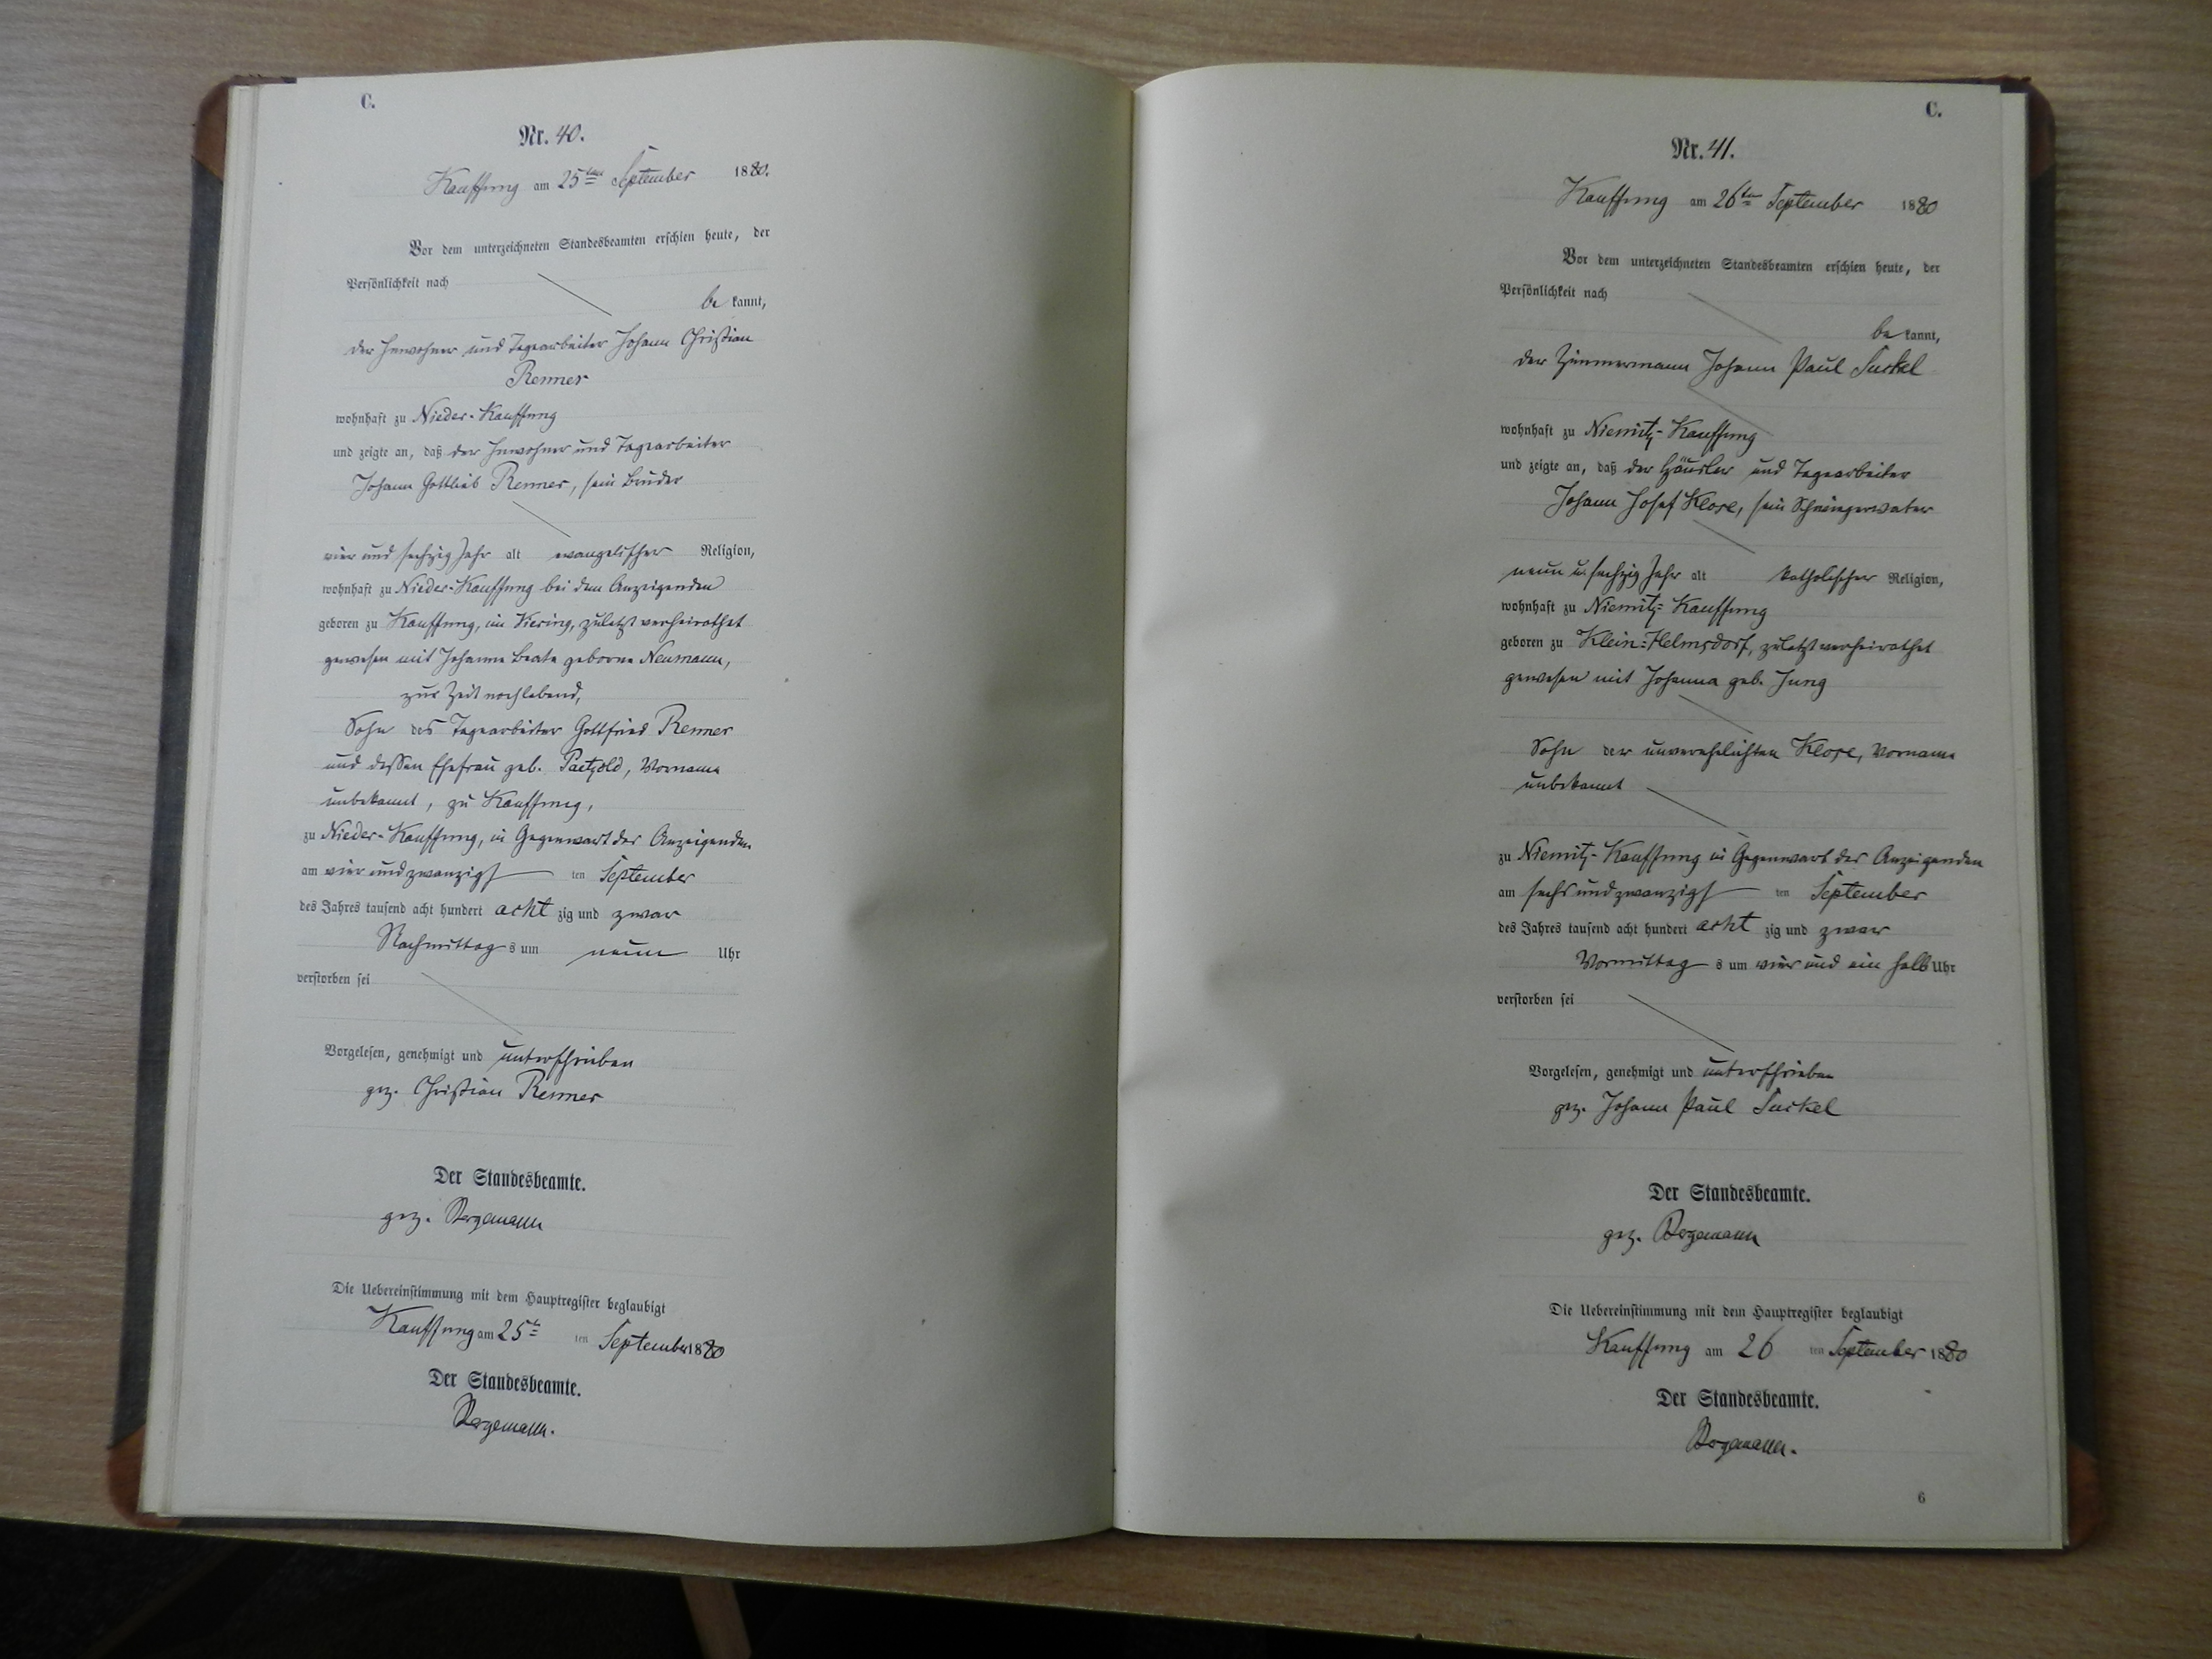 C.
Nr. 40.
Kauffung am 25ten September 1880.
Vor dem unterzeichneten Standesbeamten erschien heute, der
Persönlichkeit nach
be kannt,
der Inwohner und Tagearbeiter Johann Christian
Renner
wohnhaft zu Nieder-Kauffung
und zeigte an, daß der Inwohner und Tagearbeiter
Johann Gottlieb Renner, sein Bruder
vier und sechzig Jahr alt evangelischer Religion,
wohnhaft zu Nieder-Kauffung bei dem Anzeigenden
geboren zu Kauffung, im Viering, zuletzt verheirathet
gewesen mit Johanne Beate geborne Neumann,
zur Zeit noch lebend,
Sohn des Tagearbeiter Gottfried Renner
und dessen Ehefrau geb. Paetzold, Vorname
unbekannt, zu Kauffung,
zu Nieder-Kauffung, in Gegenwart des Anzeigenden
am vier und zwanzigs ten September
des Jahres tausend acht hundert acht zig und zwar
Nachmittag s um neun Uhr
verstorben sei
Vorgelesen, genehmigt und unterschrieben
gez. Christian Renner
Der Standesbeamte.
gez. Bergemann
Die Uebereinstimmung mit dem Hauptregister beglaubigt
Kauffung am 25t ten September 1880
Der Standesbeamte.
Bergemann.
C.
Nr. 41.
Kauffung am 26ten September 1880
Vor dem unterzeichneten Standesbeamten erschien heute, der
Persönlichkeit nach
be kannt,
der Zimmermann Johann Paul Suckel
wohnhaft zu Niemitz-Kauffung
und zeigte an, daß der Häusler und Tagearbeiter
Johann Josef Klose, sein Schwiegervater
neun u. sechzig Jahr alt katholischer Religion,
wohnhaft zu Niemitz-Kauffung
geboren zu Klein-Helmsdorf, zuletzt verheirathet
gewesen mit Johanna geb. Jung
Sohn der unverehelichten Klose, Vorname
unbekannt
zu Niemitz-Kauffung in Gegenwart des Anzeigenden
am sechs und zwanzigs ten September
des Jahres tausend acht hundert acht zig und zwar
Vormittag s um vier und ein halb Uhr
verstorben sei
Vorgelesen, genehmigt und unterschrieben
gez. Johann Paul Suckel
Der Standesbeamte.
gez. Bergemann
Die Uebereinstimmung mit dem Hauptregister beglaubigt
Kauffung am 26 ten September 1880
Der Standesbeamte.
Bergemann.
6